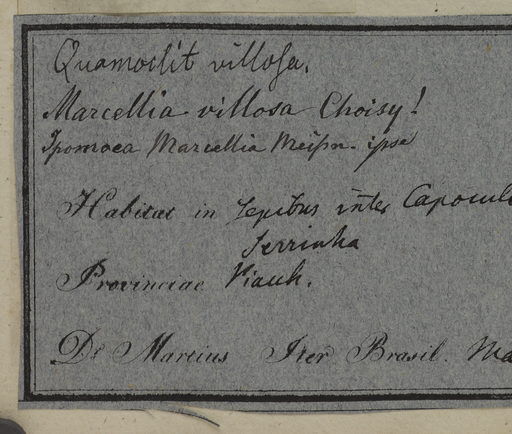 Quamoclit villosa.
Marcellia villosa Choisy!
Ipomoea Marcellia Meißn. ipse
Habitat in sepibus inter Capocul
Serrinha
Provinciae Piauh.
Dr Martius Iter Brasil. Ma